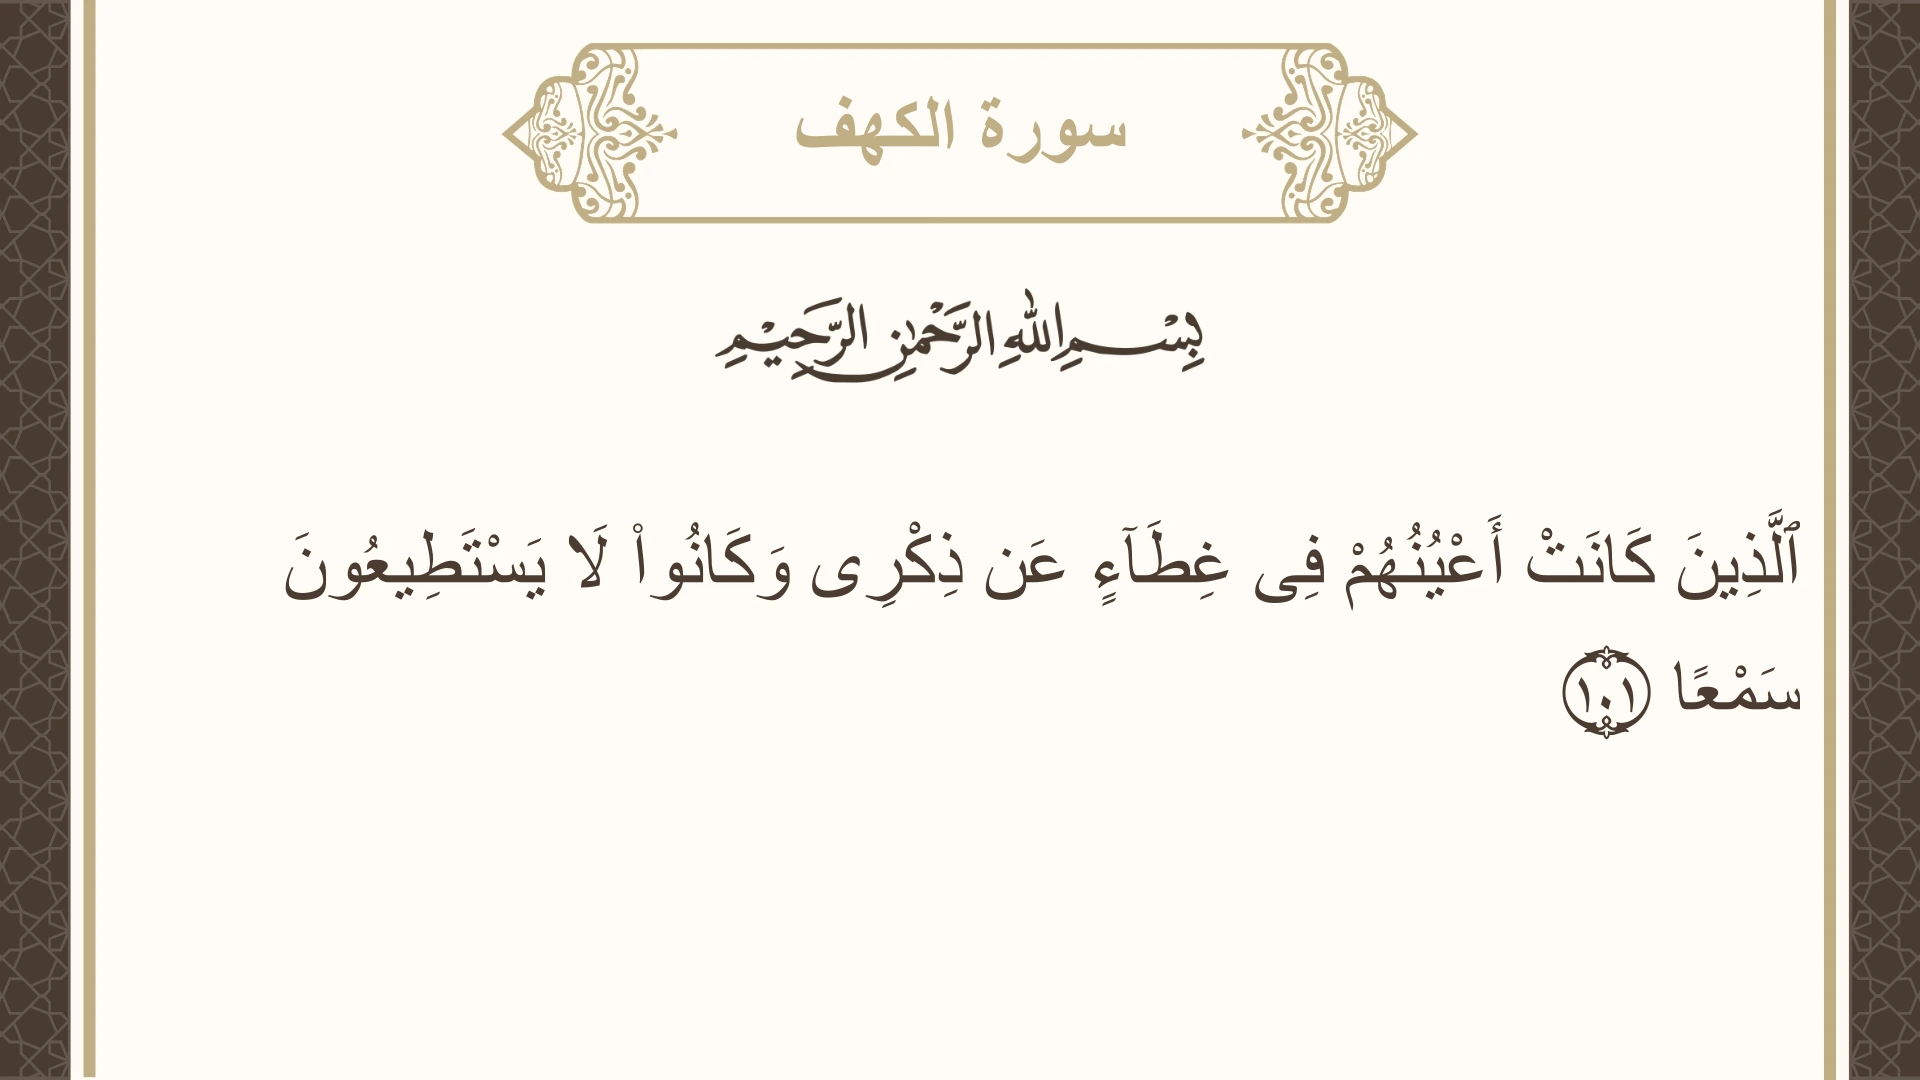 سورة الكهف
بِسْمِ اللهِ الرَّحْمٰنِ الرَّحِيْمِ
ٱلَّذِينَ كَانَتْ أَعْيُنُهُمْ فِى غِطَآءٍ عَن ذِكْرِى وَكَانُوا۟ لَا يَسْتَطِيعُونَ
سَمْعًا ١٠١